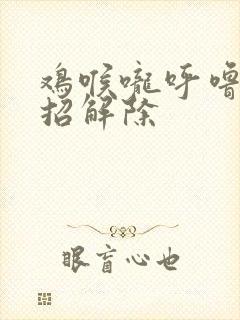 鸡喉咙呼噜
招解除
眼盲心也